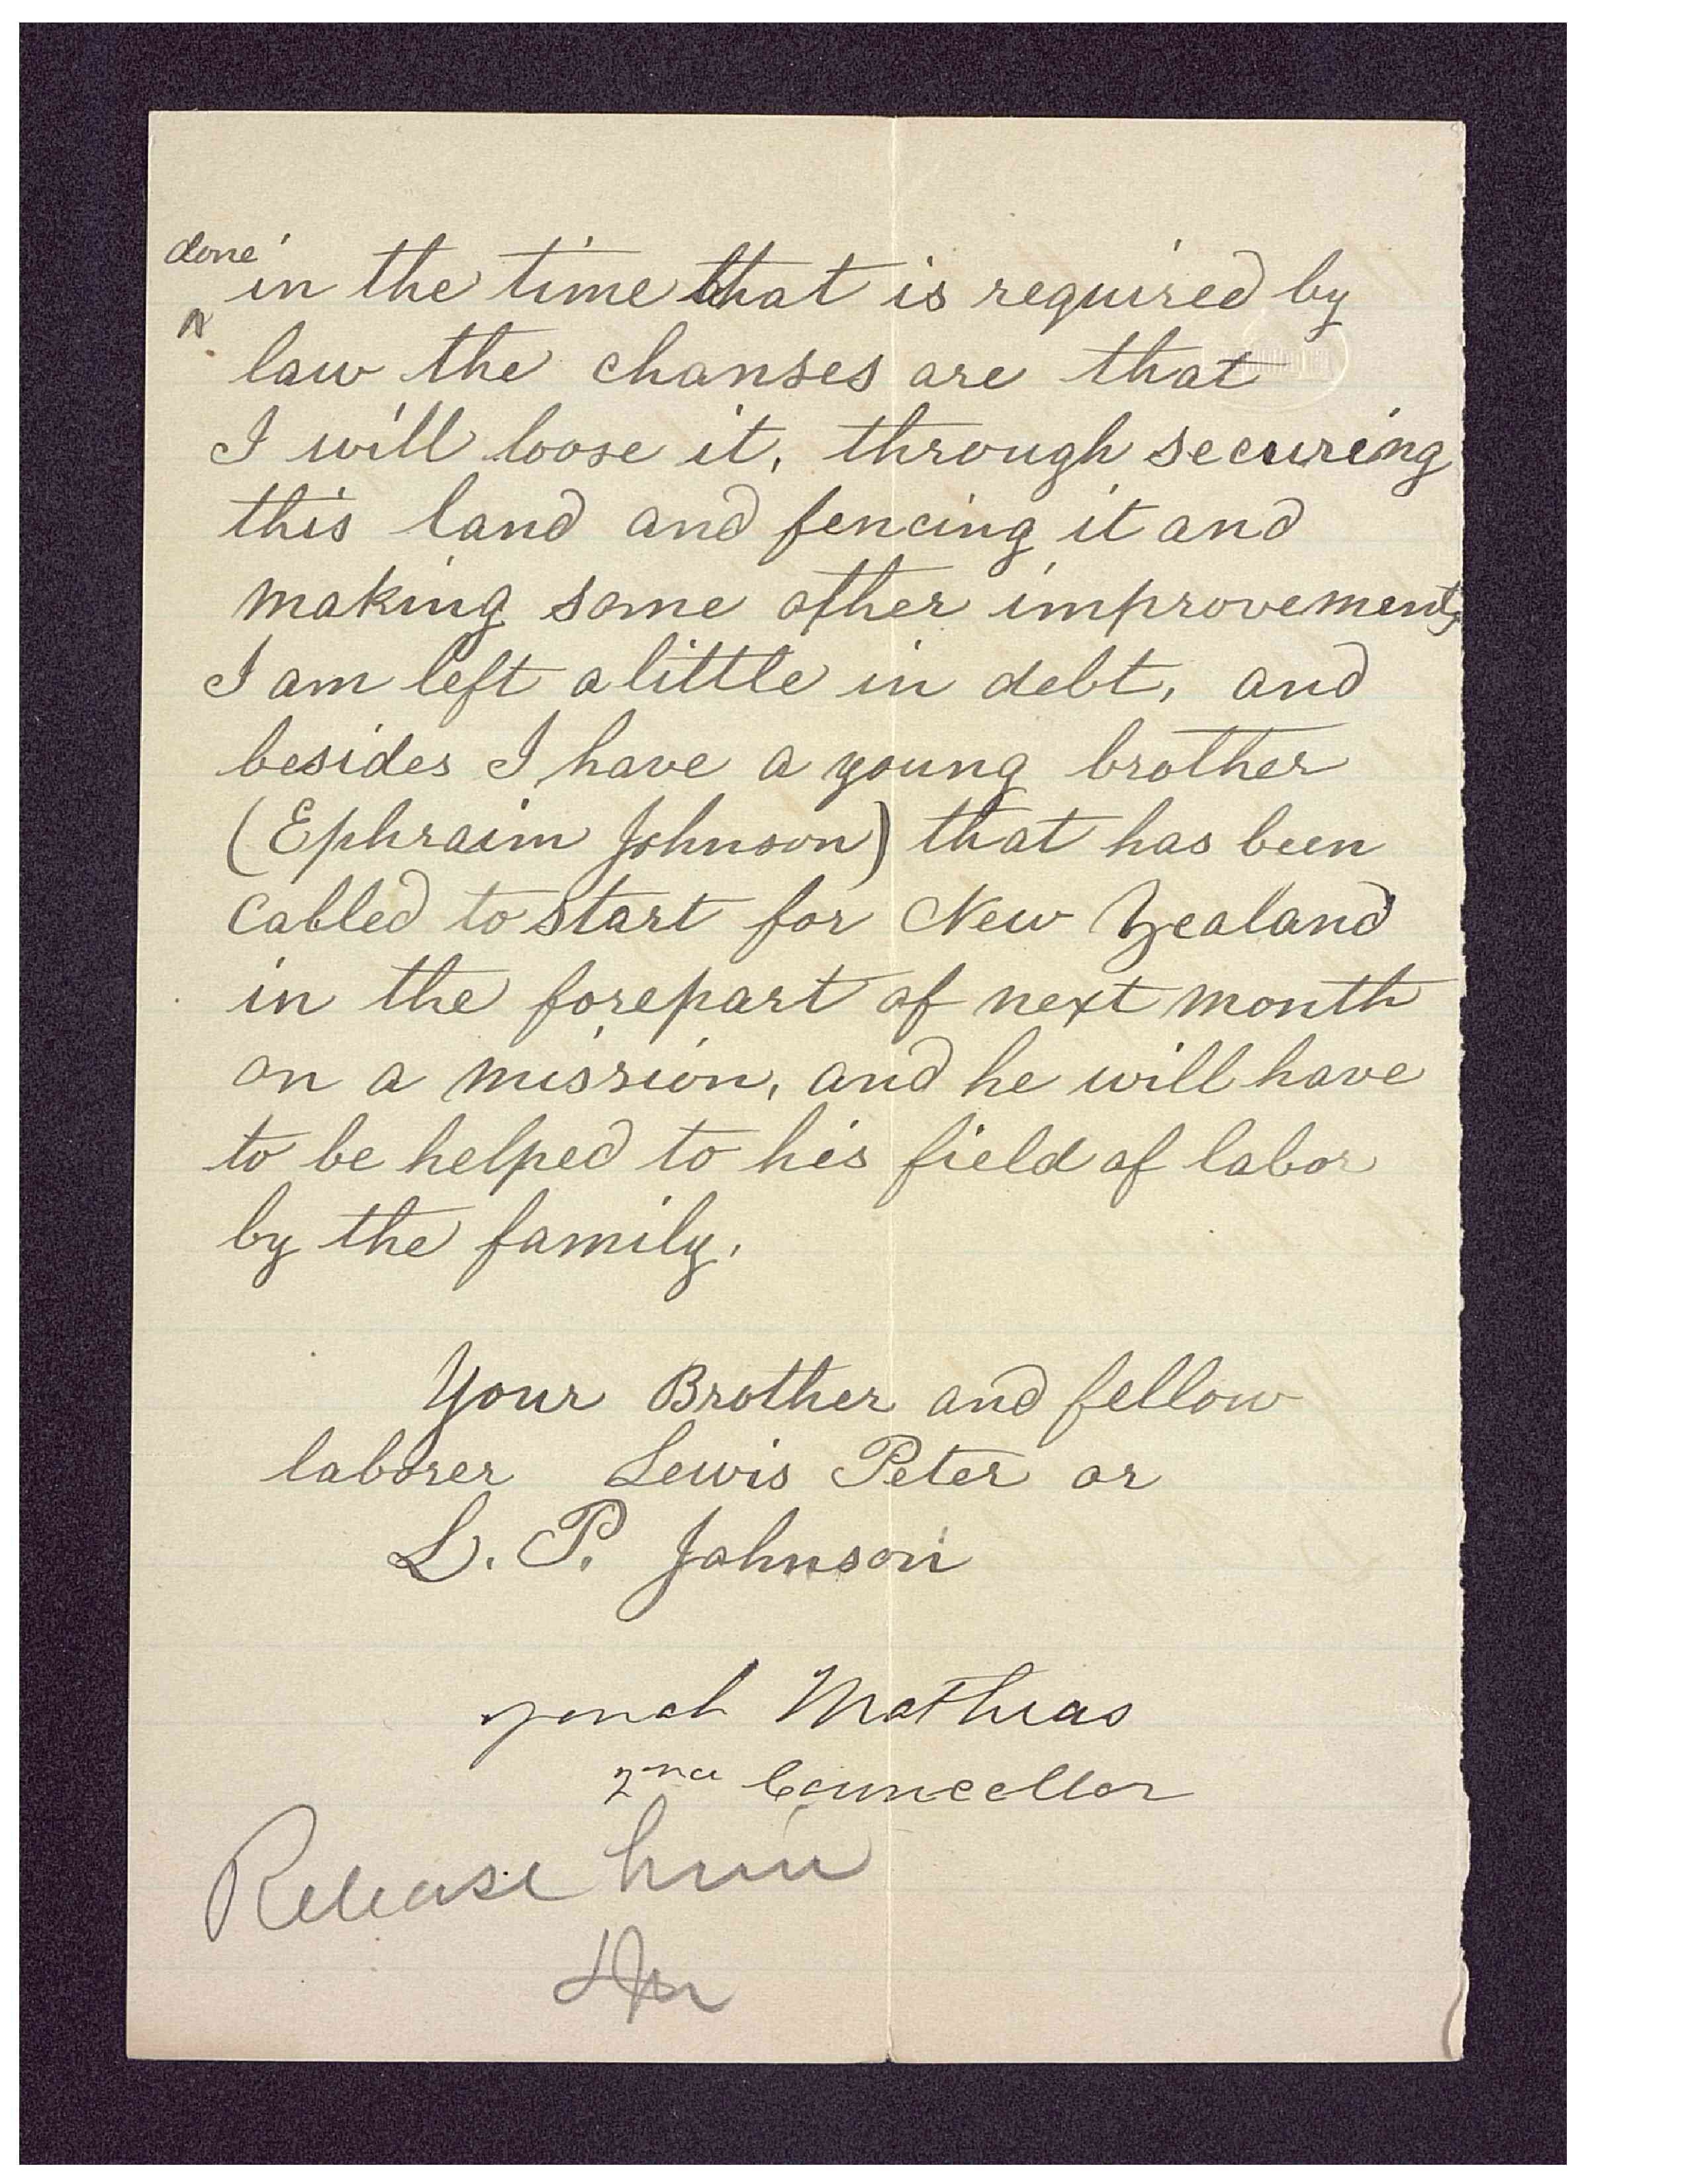 done
in the time that is required by
law the chanses are that
I will loose it, through securing
this land and fencing it and
making some other improvements
I am left a little in debt, and
besides I have a young brother
(Ephraim Johnson) that has been
called to start for New Zealand
in the forepart of next month
on a mission, and he will have
to be helped to his field of labor
by the family.
Your Brother and fellow
laborer Lewis Peter or
L. P. Johnson
Mathias
2nd Councellor
Release him